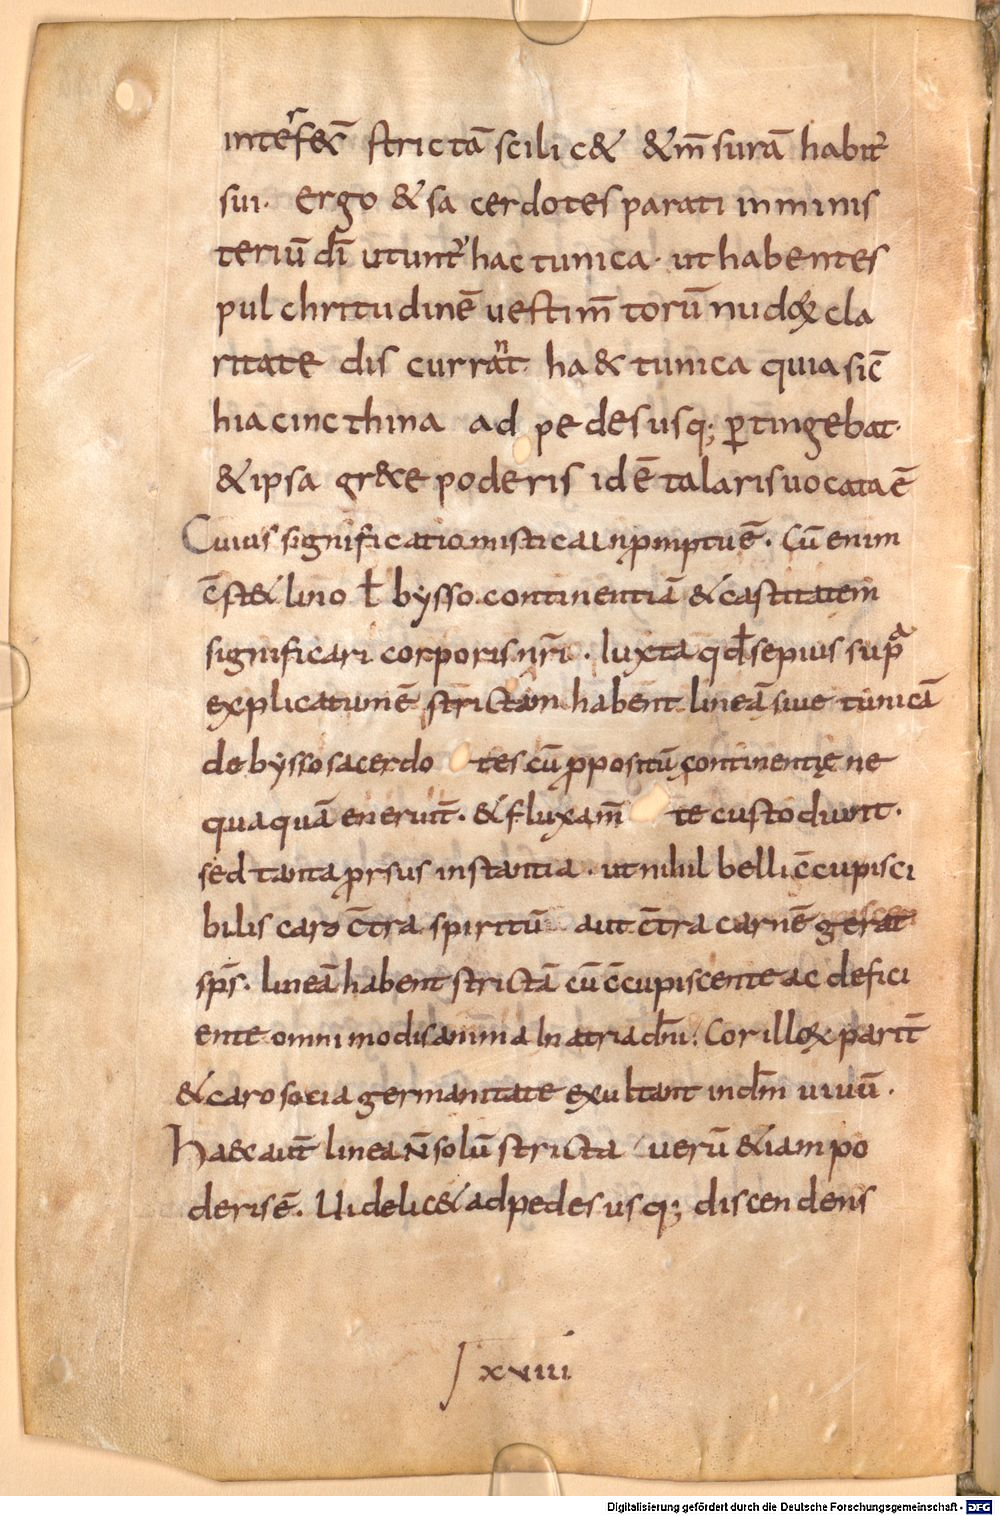 inter̄fex̄ strictā scilic& &m̄surā habit᷒
sui· ergo & sacerdotes parati in minis
teriū dī utunt᷒ hac tunica· ut habentes
pulchritudinē uestim̄torū nudoꝝ cla
ritate discurrant· ha& tunica quia sic̄
hiacincthina ad pedes usq; ꝑtingebat·
& ipsa gręce poderis idē talaris uocata ē
Cuius significatio mistica in ꝓmptu ē· Cū enim
c̄st& lino ł bysso continentiā & castitatem
significari corporis nr̄i· Iuxta qđ sepius supra
explicatum ē strictam habent lineā siue tunicā
de bysso sacerdotes cū ꝓpositū continentię ne
quaquā eneruit̄· & fluxam̄te custodiunt·
sed tanta ꝓrsus instantia· ut nihil belli c̄cupisci
bilis caro c̄tra spiritū aut c̄tra carnē gerat
sp̄s· lineā habent strictā cū c̄cupiscente ac defici
ente omnimodis anima In atria dn̄i· Cor illoꝝ parit̄
& caro socia germanitate exultant in dm̄ uiuū·
Haec aut̄ linea N̄ solū stricta uerū &iam po
deris ē· Uidelic& ad pedes usq; discendens
xviii
Digitalisierung gefördert durch die Deutsche Forschungsgemeinschaft - DFG